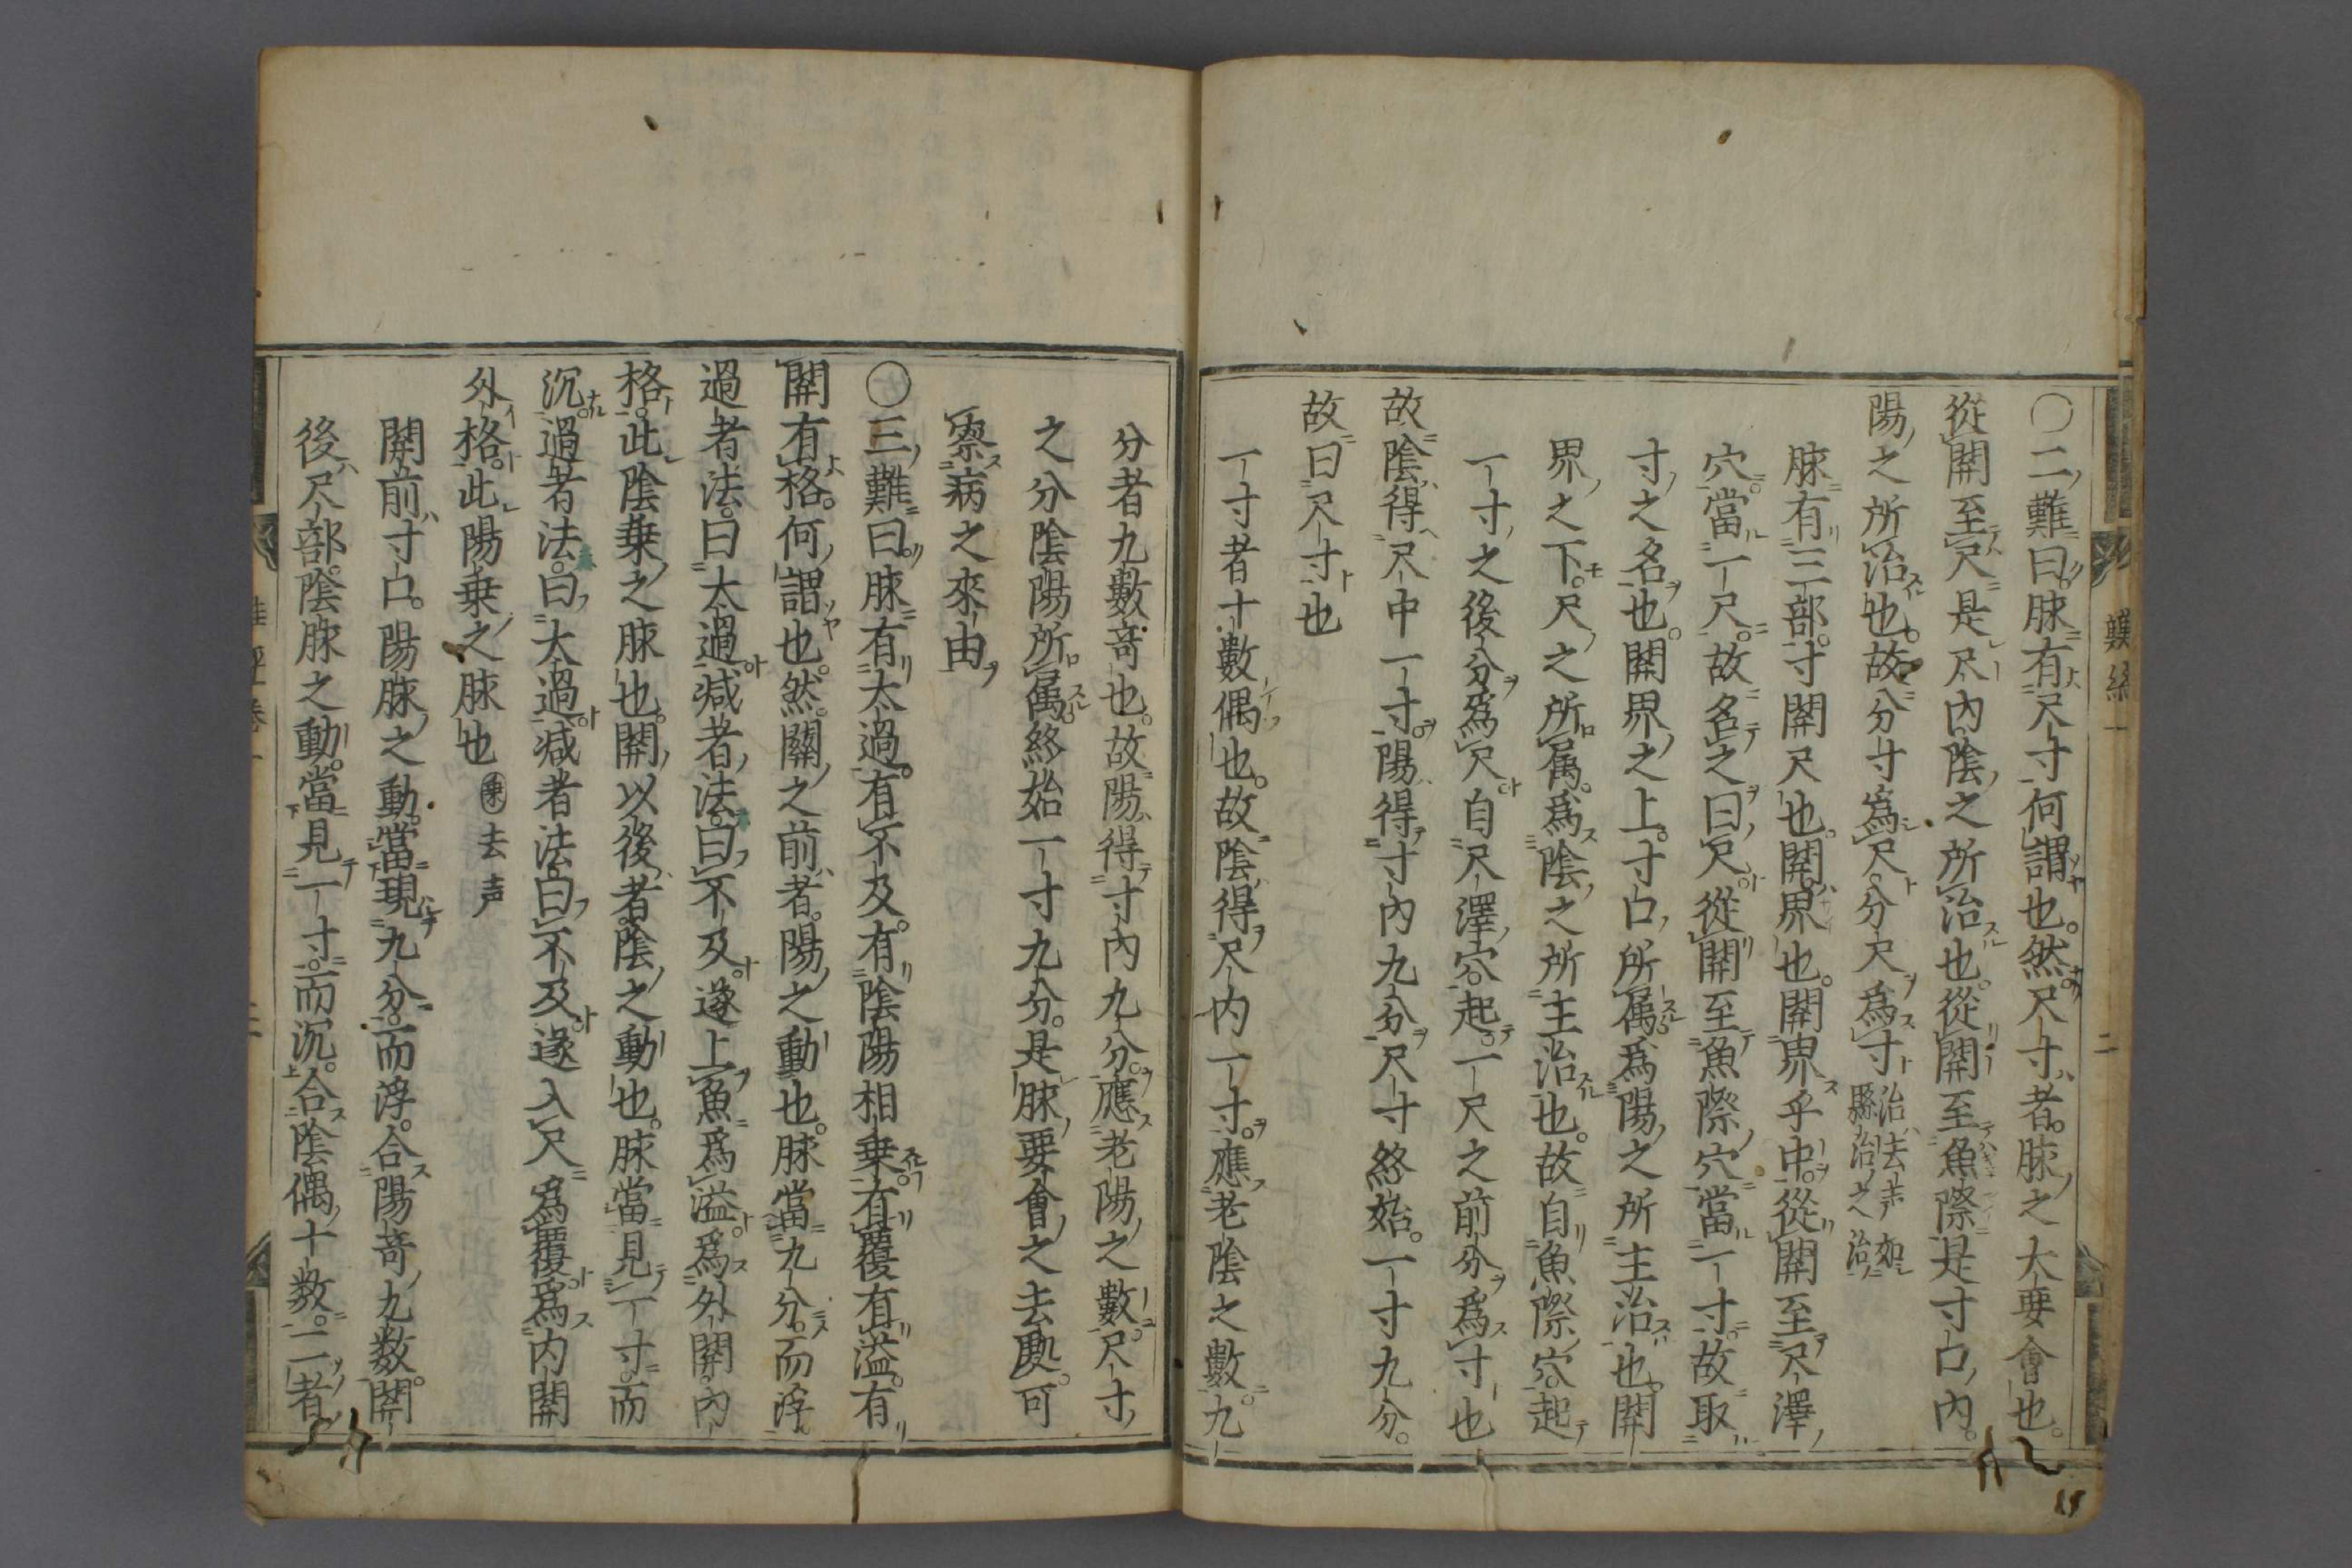 〇二難曰脉有尺寸何謂也然尺寸者脉之大要會也
從關至尺是尺內陰之所治也從關至魚際是寸口內
陽之所治也故分寸爲尺分尺爲寸治去声如縣治之治
脉有三部寸關尺也關界也關界乎中從關至尺澤
穴當一尺故名之曰尺從關至魚際穴當一寸故取
寸之名也關界之上寸口所属爲陽之所主治也關
界之下尺之所属爲陰之所主治也故自魚際穴起
一寸之後分爲尺自尺澤穴起一尺之前分爲寸也
故陰得尺中一寸陽得寸內九分尺寸終始一寸九分
故曰尺寸也
一寸者十數偶也故陰得尺内一寸應老陰之數九
分者九數竒也故陽得寸內九分應老陽之數尺寸
之分陰陽所属終始一寸九分是脉要會之去處可
察病之來由
〇三難曰脉有太過有不及有陰陽相乗有覆有溢有
關有格何謂也然關之前者陽之動也脉當九分而浮
過者法曰太過减者法曰不及遂上魚爲溢爲外關內
格此陰乗之脉也關以後者陰之動也脉當見一寸而
沉過者法曰太過减者法曰不及遂入尺爲覆爲内關
外格此陽乗之脉也 乗去声
關前寸口陽脉之動當現九分而浮合陽竒九数關
後尺部陰脉之動當見一寸而沉合陰偶十数二者
難經 二